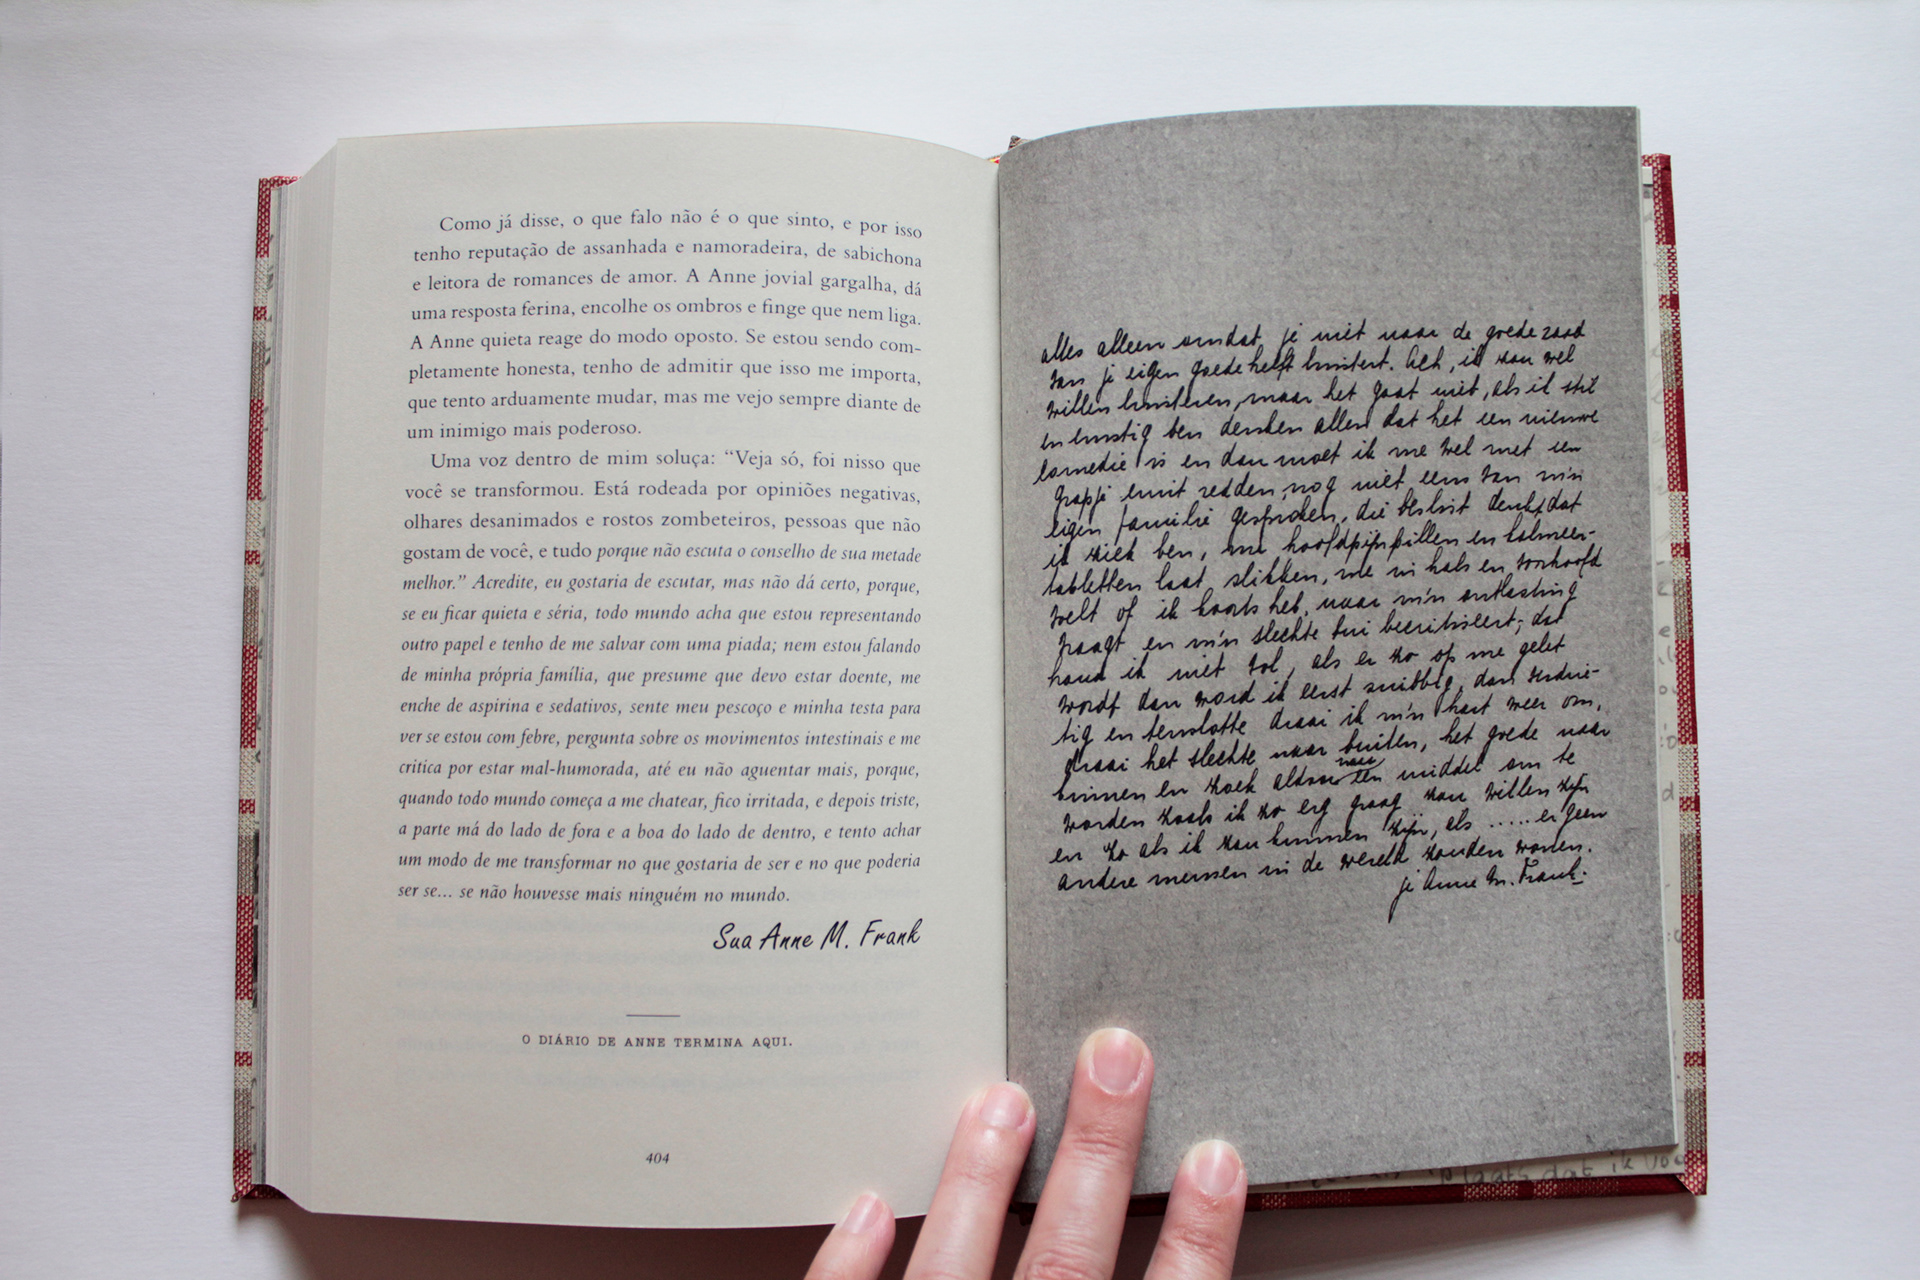 Como já disse, o que falo não é o que sinto, e por isso
tenho reputação de assanhada e namoradeira, de sabichona
e leitora de romances de amor. A Anne jovial gargalha, dá
uma resposta ferina, encolhe os ombros e finge que nem liga.
A Anne quieta reage do modo oposto. Se estou sendo com-
pletamente honesta, tenho de admitir que isso me importa,
que tento arduamente mudar, mas me vejo sempre diante de
um inimigo mais poderoso.
Uma voz dentro de mim soluça: “Veja só, foi nisso que
você se transformou. Está rodeada por opiniões negativas,
olhares desanimados e rostos zombeteiros, pessoas que não
gostam de você, e tudo porque não escuta o conselho de sua metade
melhor.” Acredite, eu gostaria de escutar, mas não dá certo, porque,
se eu ficar quieta e séria, todo mundo acha que estou representando
outro papel e tenho de me salvar com uma piada; nem estou falando
de minha própria família, que presume que devo estar doente, me
enche de aspirina e sedativos, sente meu pescoço e minha testa para
ver se estou com febre, pergunta sobre os movimentos intestinais e me
critica por estar mal-humorada, até eu não aguentar mais, porque,
quando todo mundo começa a me chatear, fico irritada, e depois triste,
a parte má do lado de fora e a boa do lado de dentro, e tento achar
um modo de me transformar no que gostaria de ser e no que poderia
ser se... se não houvesse mais ninguém no mundo.
Sua Anne M. Frank
O DIÁRIO DE ANNE TERMINA AQUI.
404
alles alleen omdat je niet naar de goede raad
van je eigen goede helft luistert. Ach, ik zou wel
willen luisteren, maar het gaat niet, als ik stil
en ernstig ben denken allen dat het een nieuwe
comedie is en dan moet ik me wel met een
grapje eruit redden, nog niet eens van m'n
eigen familie gesproken, die besluit denkt dat
ik ziek ben, me hoofdpijnpillen en kalmeer-
tabletten laat slikken, me in hals en voorhoofd
voelt of ik koorts heb, naar m'n ontlasting
vraagt en m'n slechte bui becritiseert, dat
houd ik niet vol, als er zo op me gelet
wordt dan word ik eerst snibbig, dan verdrie-
tig en tenslotte draai ik m'n hart weer om,
draai het slechte naar buiten, het goede naar
binnen en zoek aldoor naar een middel om te
worden zoals ik zo erg graag zou willen zijn
en zo als ik zou kunnen zijn, als ..... er geen
andere mensen in de wereld zouden wonen.
je Anne M. Frank.
plaats dat ik